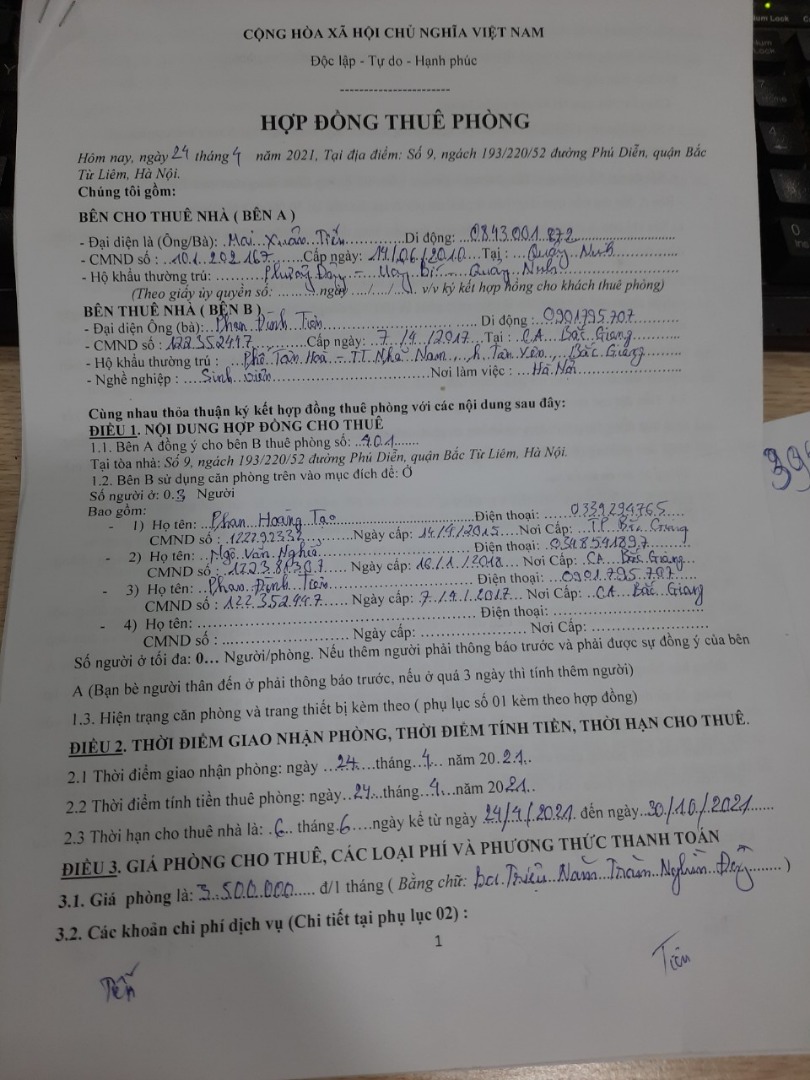 CỘNG HÒA XÃ HỘI CHỦ NGHĨA VIỆT NAM
Độc lập - Tự do - Hạnh phúc
-----------------------
HỢP ĐỒNG THUÊ PHÒNG
Hôm nay, ngày 24 tháng 4 năm 2021, Tại địa điểm: Số 9, ngách 193/220/52 đường Phú Diễn, quận Bắc
Từ Liêm, Hà Nội.
Chúng tôi gồm:
BÊN CHO THUÊ NHÀ ( BÊN A )
- Đại diện là (Ông/Bà): Mai Xuân Tiến Di động: 0843.001.872
- CMND số : 101.202167 Cấp ngày: 14/06/2010 Tại : Quảng Ninh
- Hộ khẩu thường trú: Phường - - Quảng Ninh
(Theo giấy ủy quyền số: ......... ngày .../..../.... v/v ký kết hợp hồng cho khách thuê phòng)
BÊN THUÊ NHÀ ( BÊN B )
- Đại diện Ông (bà): Phan Đình Tiên Di động : 0901795707
- CMND số : 122352447 Cấp ngày: 7/4/2017 Tại : CA Bắc Giang
- Hộ khẩu thường trú : Phố Tân Hoà - TT Nhã Nam, h. Tân Yên, Bắc Giang
- Nghề nghiệp : Sinh viên Nơi làm việc : Hà Nội
Cùng nhau thỏa thuận ký kết hợp đồng thuê phòng với các nội dung sau đây:
ĐIỀU 1. NỘI DUNG HỢP ĐỒNG CHO THUÊ
1.1. Bên A đồng ý cho bên B thuê phòng số: 401
Tại tòa nhà: Số 9, ngách 193/220/52 đường Phú Diễn, quận Bắc Từ Liêm, Hà Nội.
1.2. Bên B sử dụng căn phòng trên vào mục đích để: Ở
Số người ở: 0.3 Người
Bao gồm:
- 1) Họ tên: Phan Hoàng Tạo Điện thoại: 0339294765
CMND số : 122292332 Ngày cấp: 14/4/2015 Nơi Cấp: TP Bắc Giang
- 2) Họ tên: Ngô Văn Nghĩa Điện thoại: 0348541897
CMND số : 122388307 Ngày cấp: 16/1/2018 Nơi Cấp: CA Bắc Giang
- 3) Họ tên: Phan Đình Tiên Điện thoại: 0901.795.707
CMND số : 122352447 Ngày cấp: 7/4/2017 Nơi Cấp: CA Bắc Giang
- 4) Họ tên: .................... Điện thoại: ....................
CMND số : .................... Ngày cấp: .................... Nơi Cấp: ....................
Số người ở tối đa: 0… Người/phòng. Nếu thêm người phải thông báo trước và phải được sự đồng ý của bên
A (Bạn bè người thân đến ở phải thông báo trước, nếu ở quá 3 ngày thì tính thêm người)
1.3. Hiện trạng căn phòng và trang thiết bị kèm theo ( phụ lục số 01 kèm theo hợp đồng)
ĐIỀU 2. THỜI ĐIỂM GIAO NHẬN PHÒNG, THỜI ĐIỂM TÍNH TIỀN, THỜI HẠN CHO THUÊ.
2.1 Thời điểm giao nhận phòng: ngày 24 tháng 4 năm 2021
2.2 Thời điểm tính tiền thuê phòng: ngày 24 tháng 4 năm 2021
2.3 Thời hạn cho thuê nhà là: 6 tháng 6 ngày kể từ ngày 24/4/2021 đến ngày 30/10/2021
ĐIỀU 3. GIÁ PHÒNG CHO THUÊ, CÁC LOẠI PHÍ VÀ PHƯƠNG THỨC THANH TOÁN
3.1. Giá phòng là: 3.500.000 đ/1 tháng ( Bằng chữ: ba Triệu Năm Trăm Nghìn Đồng )
3.2. Các khoản chi phí dịch vụ (Chi tiết tại phụ lục 02) :
1
Tiến
Tiên